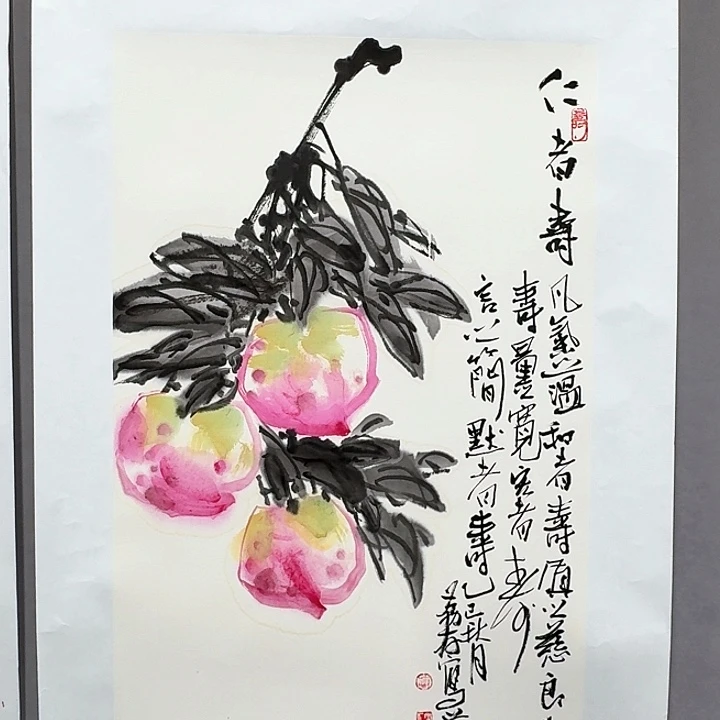 仁者壽
凡氣溫和者壽質之慈良
壽量寬宏者壽
言之簡默者壽乙巳秋月
寫